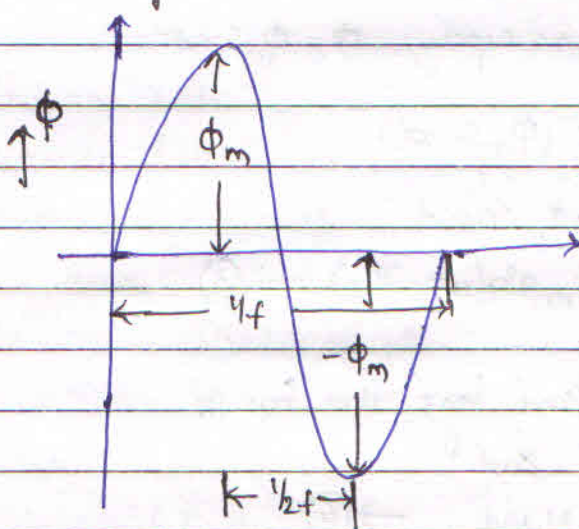 ϕ
ϕm
1/f
-ϕm
1/2f